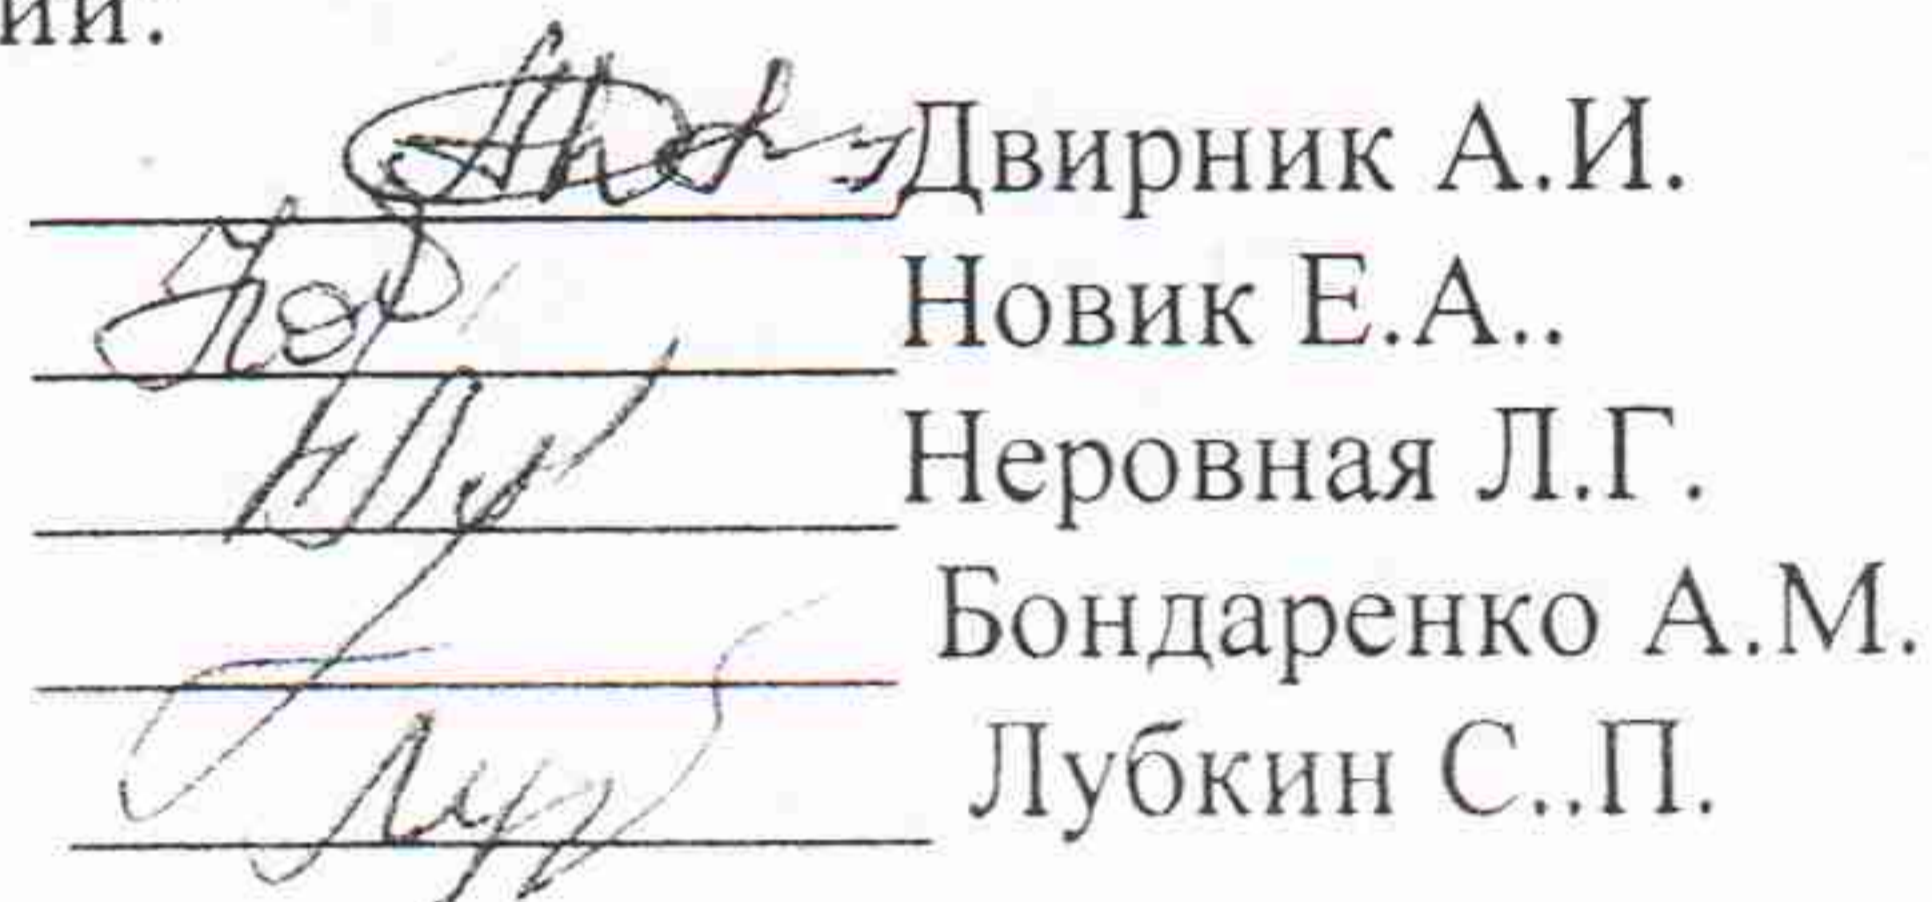 ии.
Двирник А.И.
Новик Е.А..
Неровная Л.Г.
Бондаренко А.М.
Лубкин С..П.